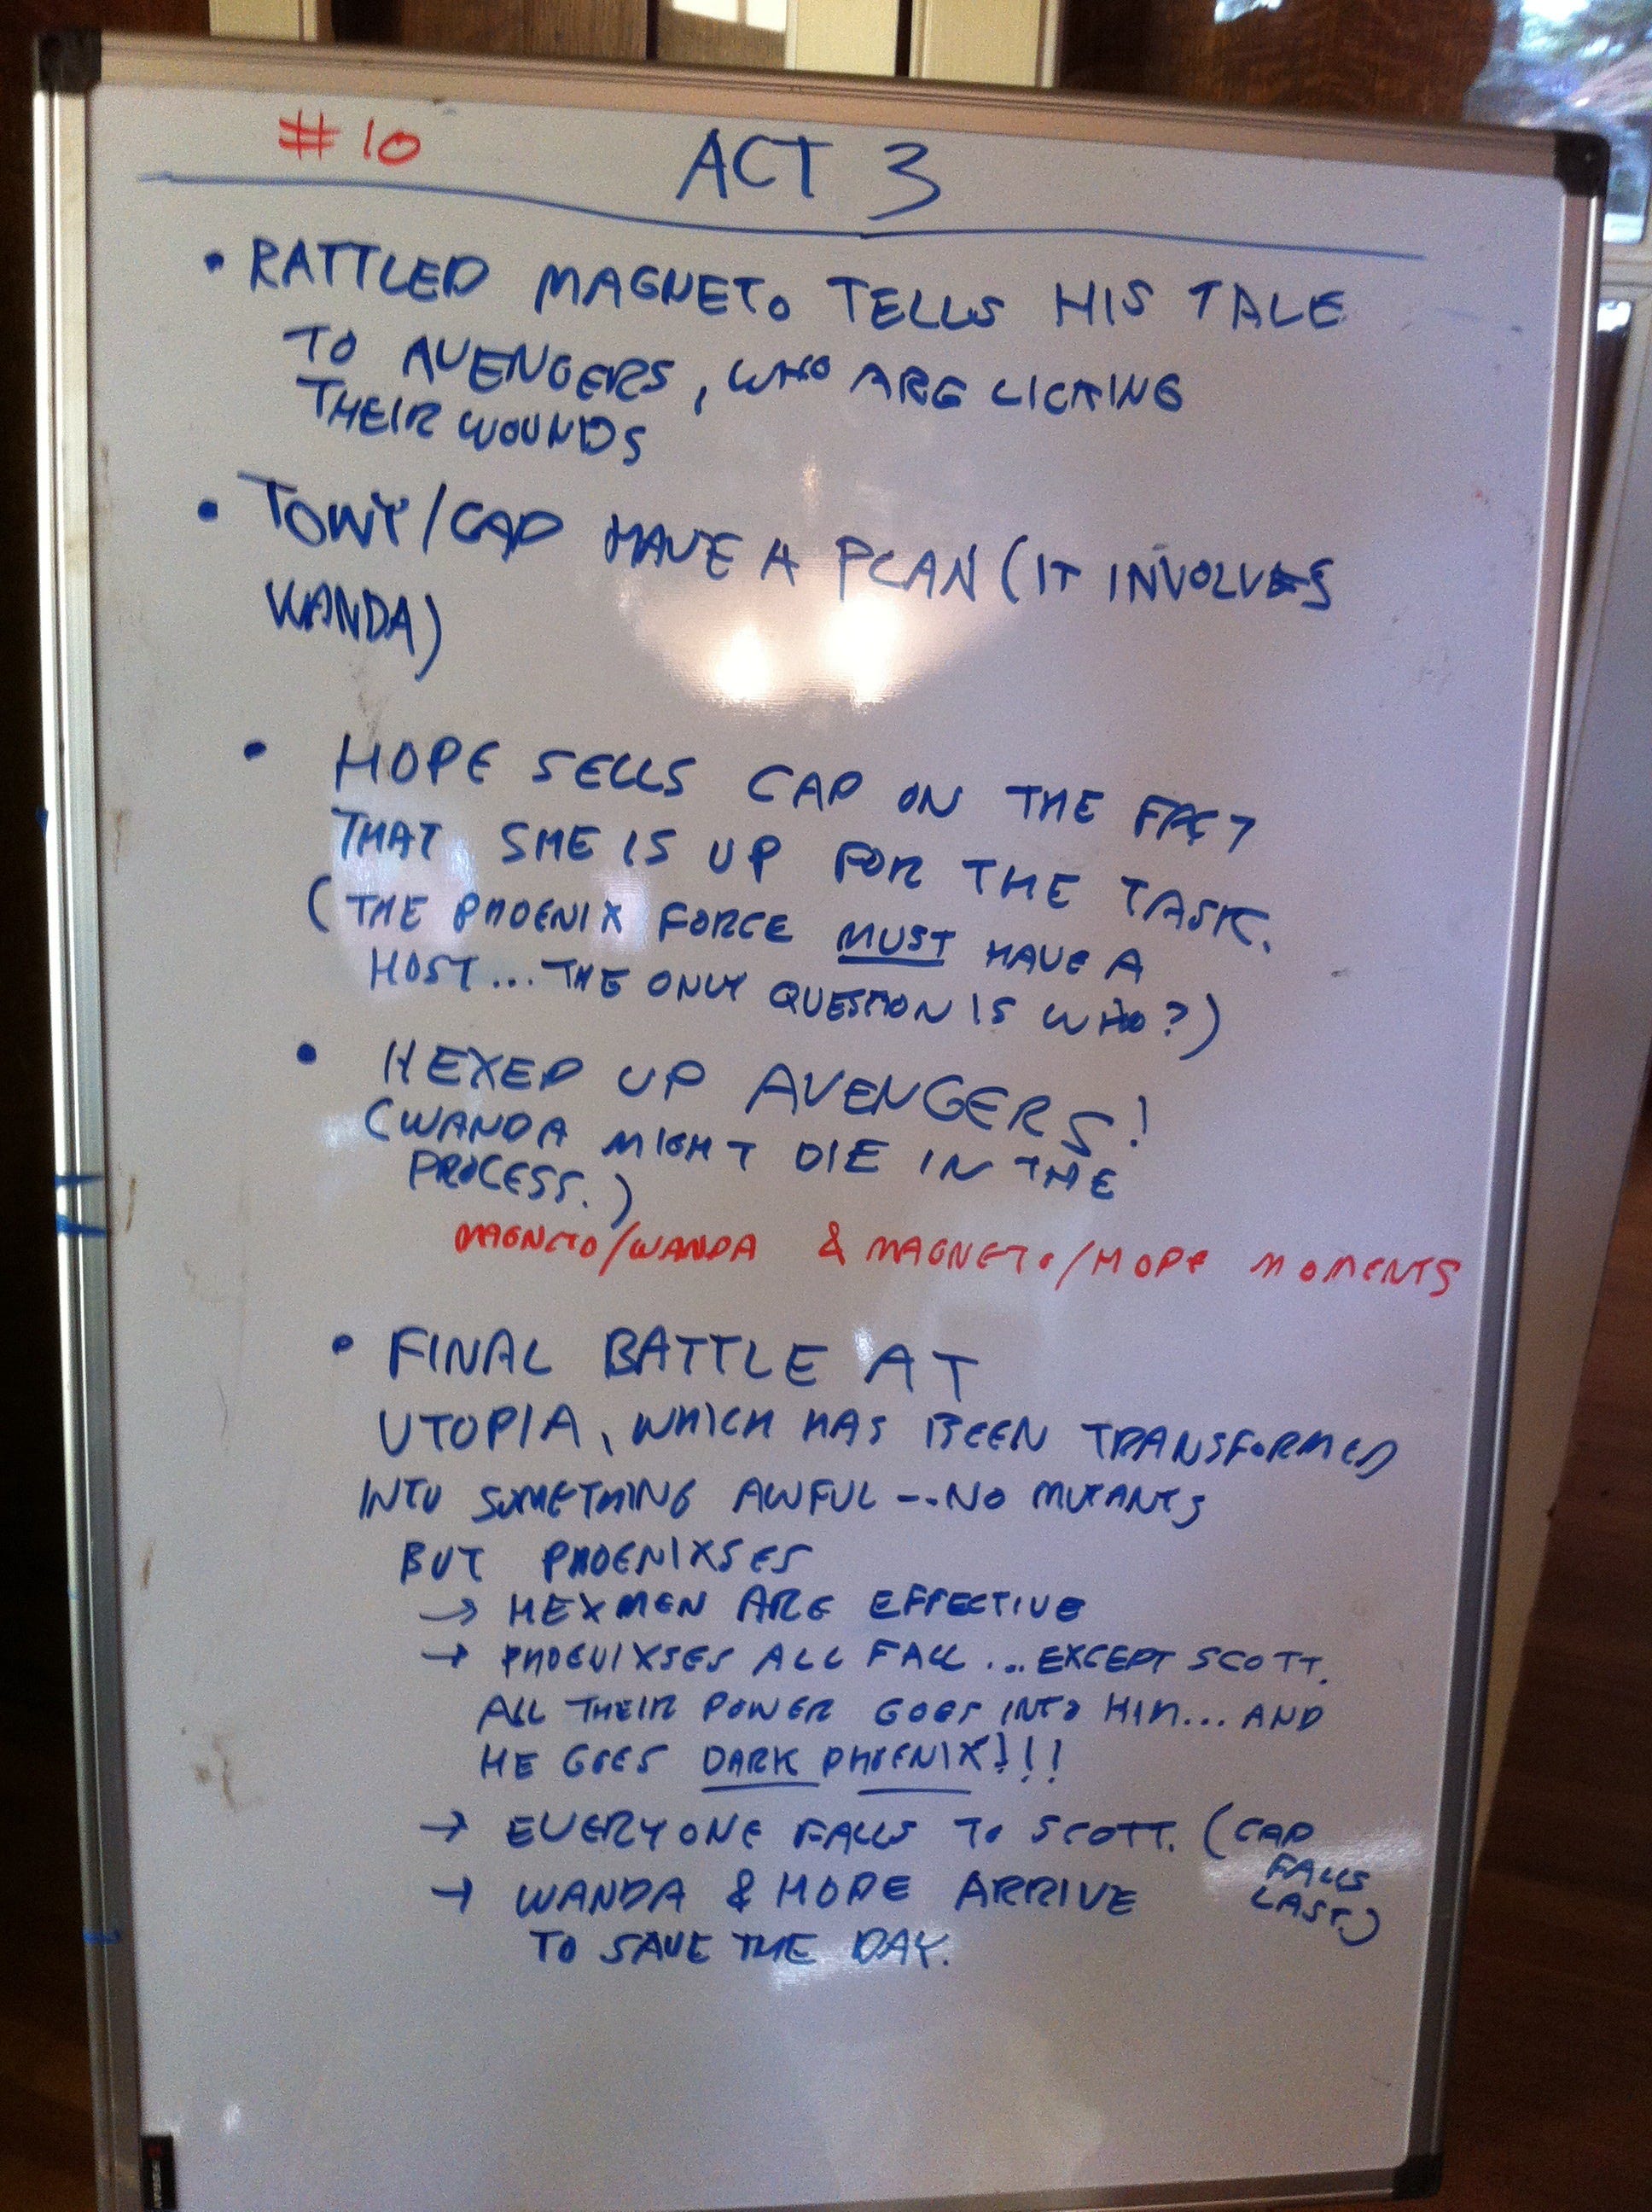 #10 ACT 3
• RATTLED MAGNETO TELLS HIS TALE
TO AVENGERS, WHO ARE LICKING
THEIR WOUNDS
• TONY/CAP HAVE A PLAN (IT INVOLVES
WANDA)
• HOPE SELLS CAP ON THE FACT
THAT SHE IS UP FOR THE TASK.
(THE PHOENIX FORCE MUST HAVE A
HOST... THE ONLY QUESTION IS WHO?)
• HEXED UP AVENGERS!
(WANDA MIGHT DIE IN THE
PROCESS.)
MAGNETO/WANDA & MAGNETO/HOPE MOMENTS
• FINAL BATTLE AT
UTOPIA, WHICH HAS BEEN TRANSFORMED
INTO SOMETHING AWFUL -- NO MUTANTS
BUT PHOENIXSES
→ HEXMEN ARE EFFECTIVE
→ PHOENIXSES ALL FALL... EXCEPT SCOTT.
ALL THEIR POWER GOES INTO HIM... AND
HE GOES DARK PHOENIX!!!
→ EVERYONE FALLS TO SCOTT. (CAP
FALLS
LAST.)
→ WANDA & HOPE ARRIVE
TO SAVE THE DAY.